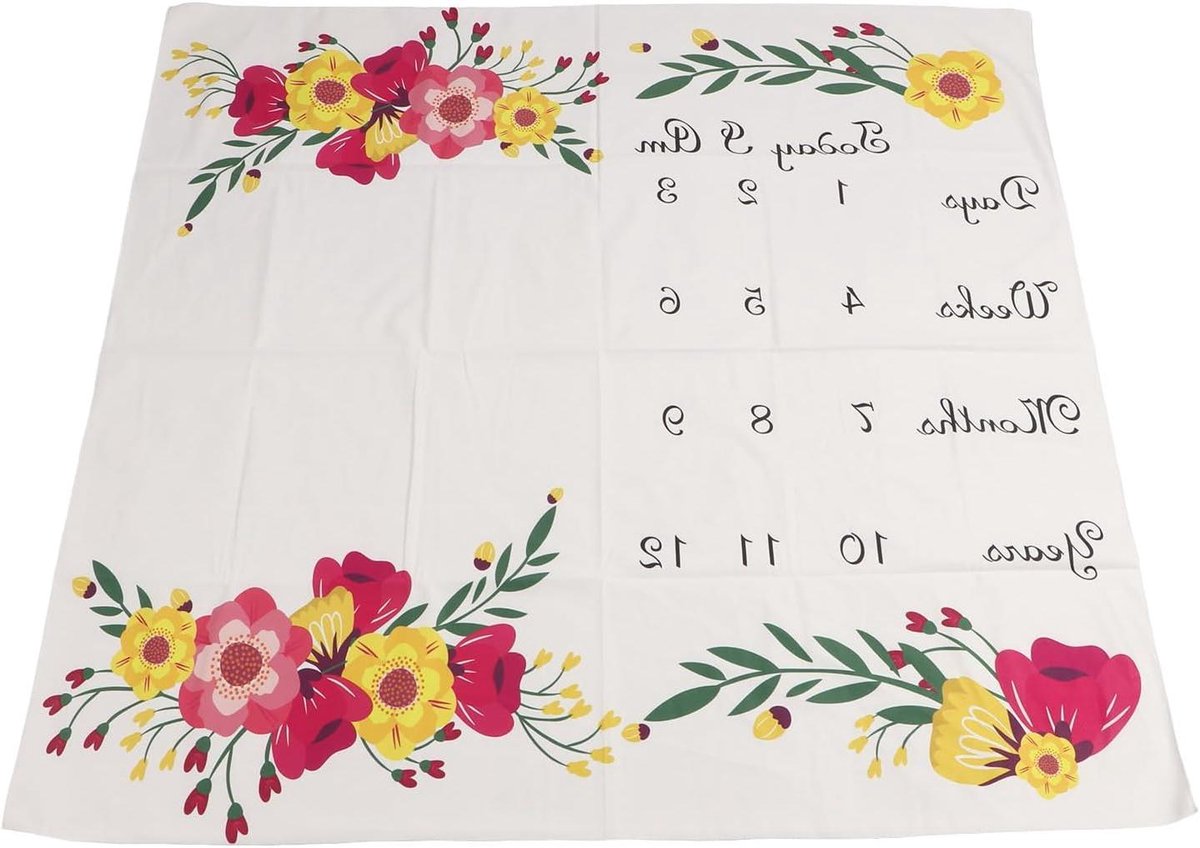 Today I Am
Days 1 2 3
Weeks 4 5 6
Months 7 8 9
Years 10 11 12